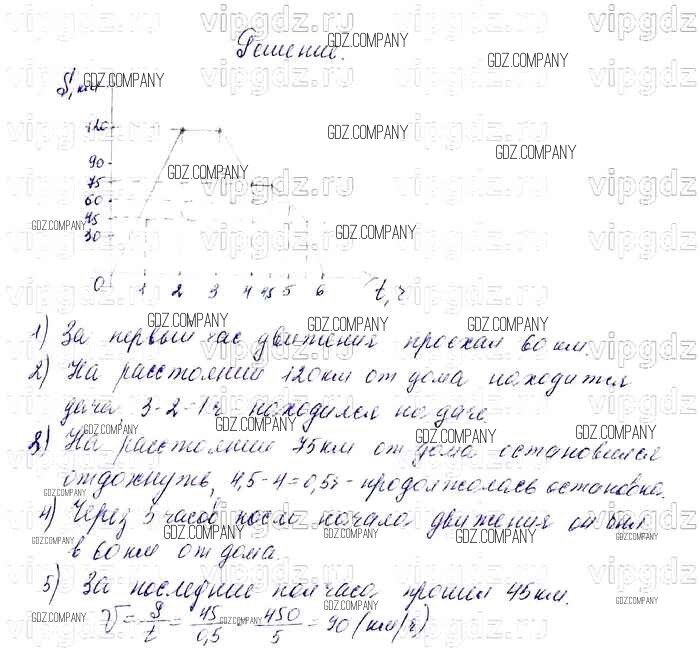 Решение.
S, км
120
90
75
60
45
30
0 1 2 3 4 4,5 5 6 t, ч
1) За первый час движения проехал 60 км.
2) На расстоянии 120 км от дома находится
дача, 3-2=1 ч находился на даче.
3) На расстоянии 75 км от дома остановился
отдохнуть, 4,5-4=0,5 ч - продолжалась остановка.
4) Через 5 часов после начала движения он был
в 60 км от дома.
5) За последние полчаса прошел 45 км.
V = S/t = 45/0,5 = 450/5 = 90 (км/ч)
GDZ.COMPANY
vipgdz.ru